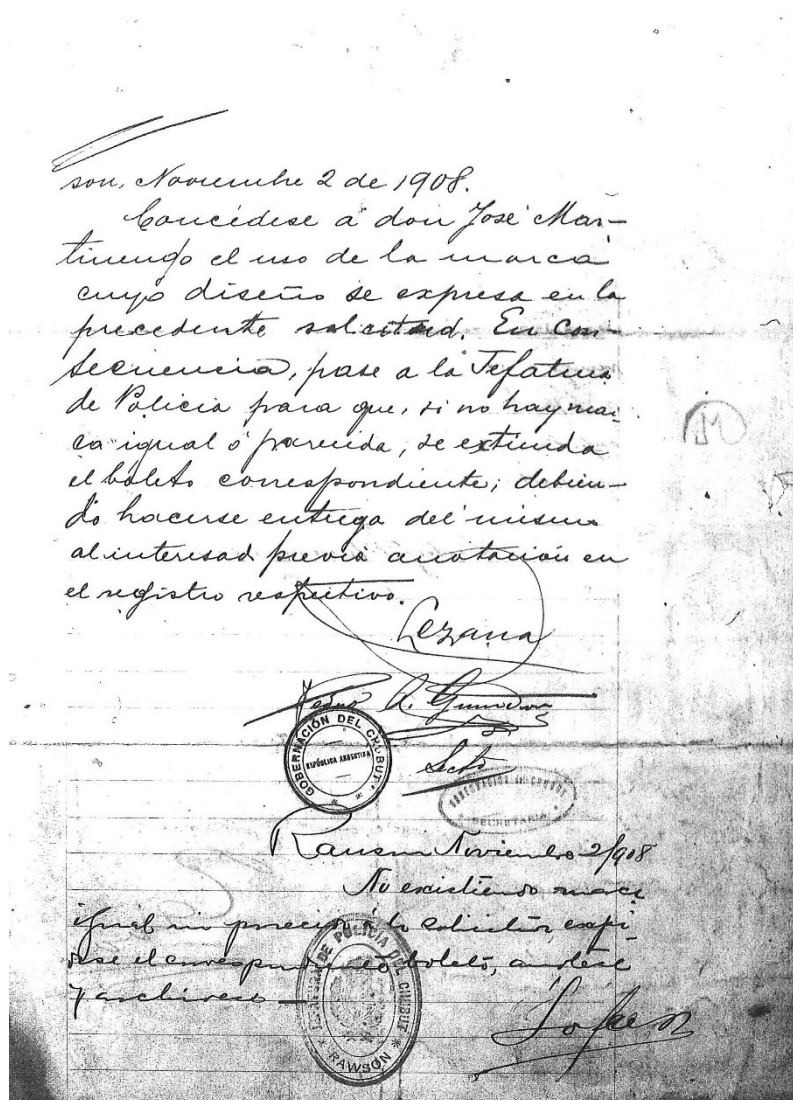 son, Noviembre 2 de 1908.
Concédese a don José Mar-
tinengo el uso de la marca
cuyo diseño se expresa en la
precedente solicitud. En Con-
secuencia, pase a la Jefatura
de Policia para que, si no hay mar-
ca igual ó parecida, se extienda
el boleto correspondiente; debien-
do hacerse entrega del mismo
al interesad previa anotacion en
el registro respectivo.
Lezana
Pedro A.
Secto
GOBERNACIÓN DEL CHUBUT
REPÚBLICA ARGENTINA
GOBERNACION DEL CHUBUT
SECRETARIA
Rawson Noviembre 2/908
No existiendo marca
igual ni parecida á lo solicitado, expí
dase el correspondiente boleto, anótese
y archívese
DE POLICIA DEL CHUBUT
RAWSON
M